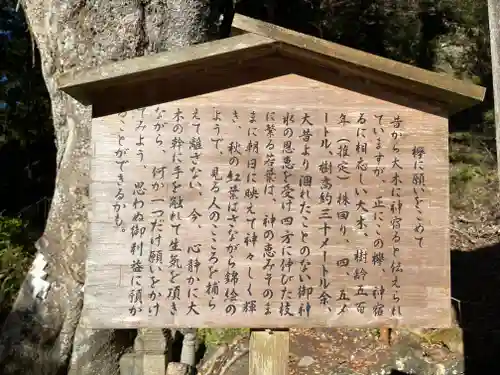 欅に願いをこめて
昔から大木に神宿ると伝えられ
ていますが、正にこの欅、神宿
るに相応しい大木、樹齢五百
年（推定）株回り、四、五メ
ートル、樹高約三十メートル余、
大昔より涸れたことのない御神
水の恩恵を受け四方に伸びた枝
に繁る若葉は、神の恵みそのま
まに朝日に映えて神々しく輝
き、秋の紅葉はさながら錦絵の
ようで、見る人のこころを捕ら
えて離さない。今、心静かに大
木の幹に手を触れて生気を頂き
ながら、何か一つだけ願いをかけ
てみよう、思わぬ御利益に預が
ることができるかも。